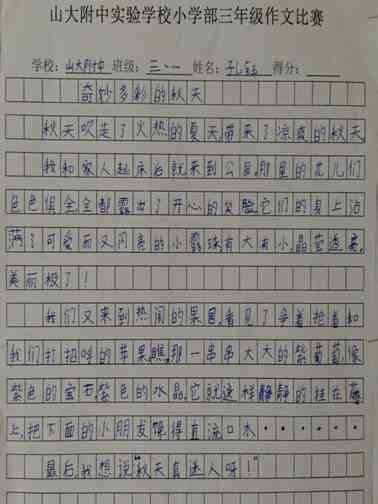 山大附中实验学校小学部三年级作文比赛
学校：山大附中 班级：三、一 姓名：孔钰 得分：
奇妙多彩的秋天
秋天吹走了火热的夏天，带来了凉爽的秋天。
我和家人起床后就来到公园，那里的花儿们
色色俱全，全都露出了开心的笑脸，它们的身上沾
满了可爱而又闪亮的小露珠有大有小，晶莹透亮，
美丽极了！
我们又来到热闹的果园，看见了争着抢着和
我们打招呼的苹果，瞧那一串串大大的紫葡萄，像
紫色的宝石紫色的水晶，它就这样静静的挂在藤
上，把下面的小朋友馋得直流口水······
最后，我想说“秋天真迷人呀！”